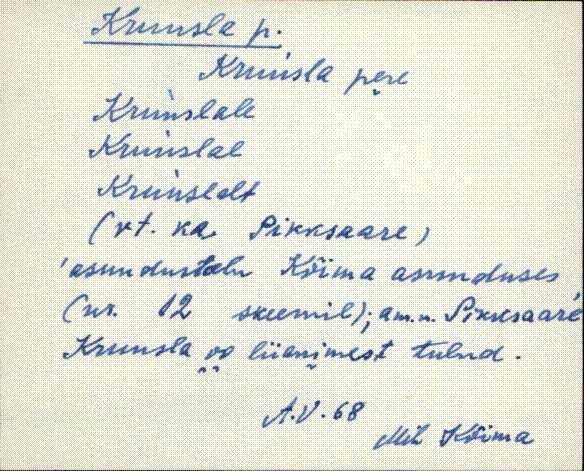 Kruusla p.
Kruùsla pere
Kruùslale
Kruùslal
Kruùslalt
(vt. ka Pikksaare)
'asundustalu Kõima asunduses
(nr. 12 skeemil); am.n. Pikksaare'
Kruusla oo liianimest tulnd.
A.V. 68
Mih Kõima